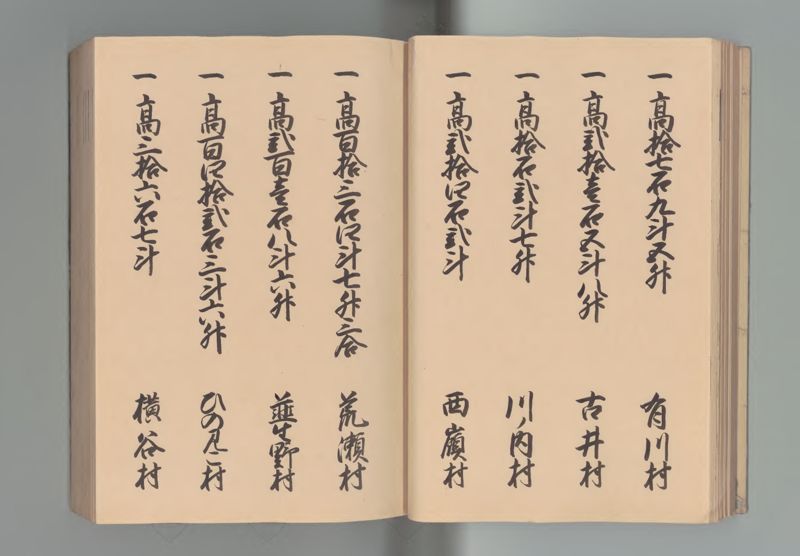 一 高拾七石九斗五升 有川村
一 高弐拾壱石五斗八升 古井村
一 高拾石弐斗七升 川ノ内村
一 高弐拾四石弐斗 西嶺村
一 高百拾三石四斗七升三合 荒瀬村
一 高弐百壱石八斗六升 韮生野村
一 高百四拾弐石三斗六升 ひの村
一 高三拾六石七斗 横谷村